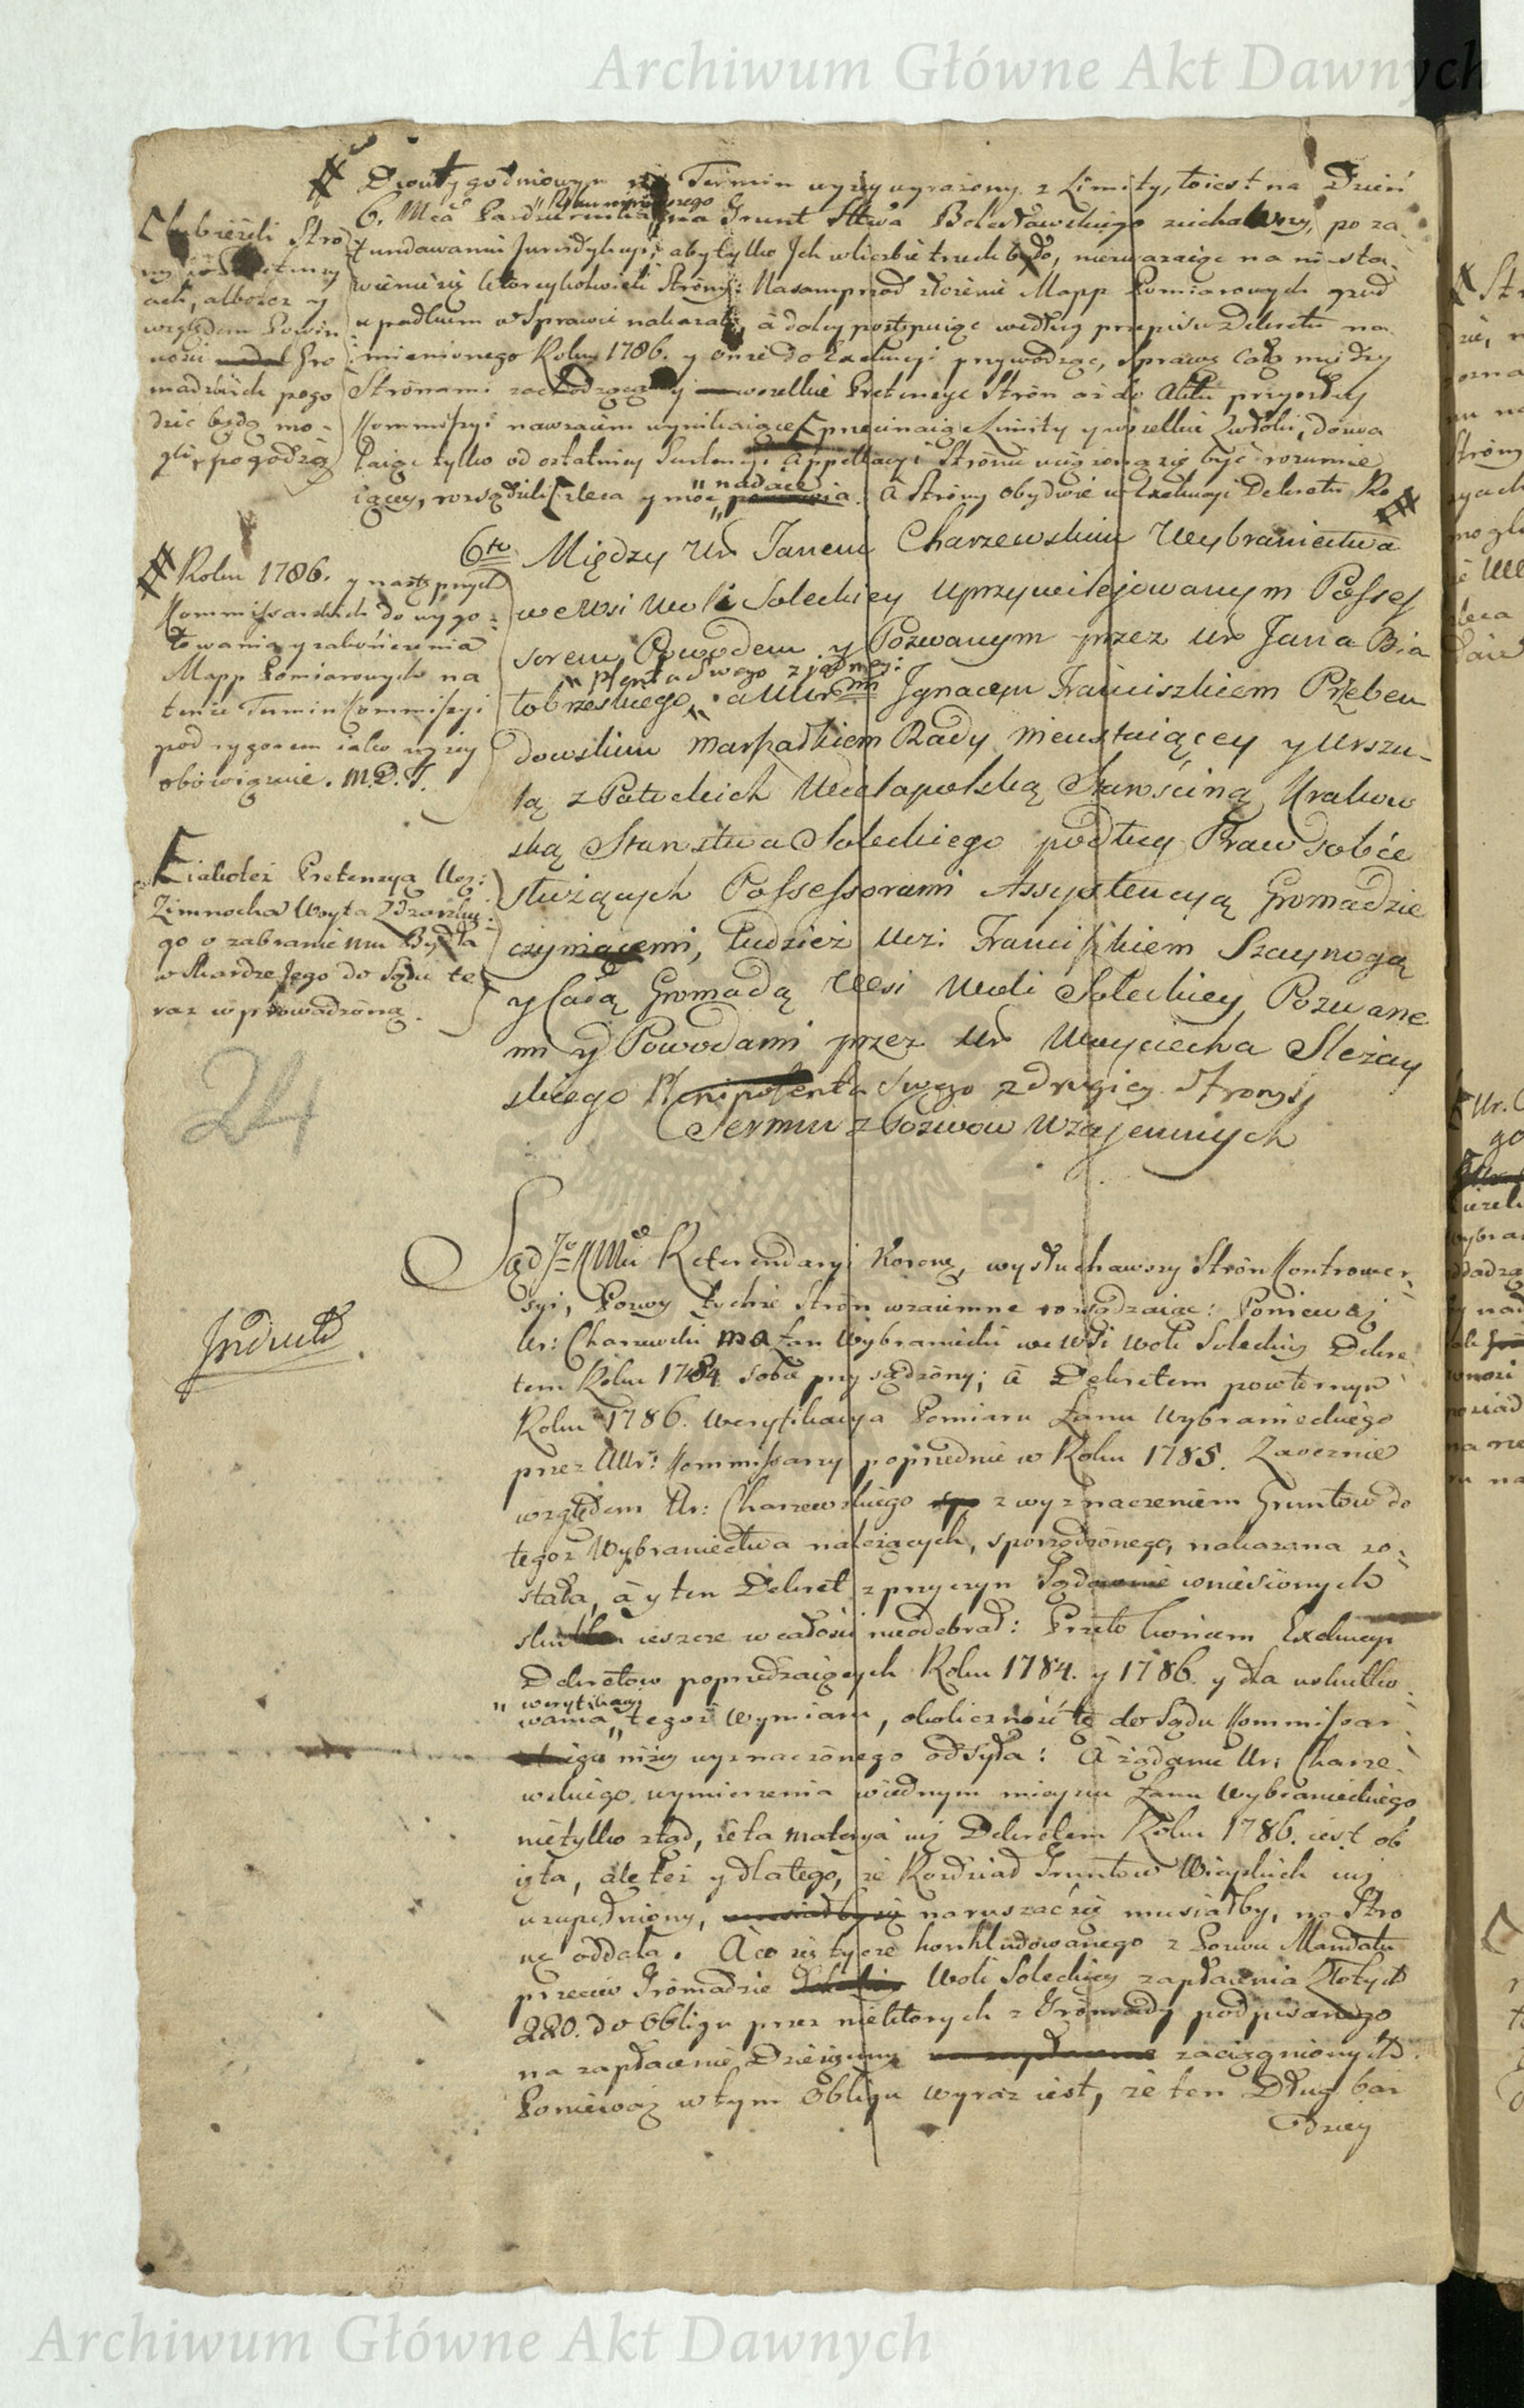 Archiwum Główne Akt Dawnych
Dwutygodniowym Termin wyżey wyrażony z Limity, to iest na Dzień
6. Mca Października na Grunt Sttwa Bolesławskiego ziechawszy, po za
fundowaniu Jurisdykcyi, aby tylko Jch w liczbie trzech było, niezważaiąc na niesta
wienie się ktoreykolwiek Strony: Nasamprzod złożenie Mapp Pomiarowych pod
upadkiem w Sprawie nakazali, à daley postępuiąc według przepisu Dekretu na
mienionego Roku 1786. y onże do Exekucyi przywodząc, Sprawę całą między
Stronami zachodzącą y wszelkie Pretensye Stron aż do Aktu przyszłey
Kommissyi nawzaiem wynikaiące przecinaiąc Limity y wszelkie Zwłoki, dozwa
laiąc tylko od ostatniey Sentencyi Appellacyi Stronie uciążoną się być rozumie
iącey, rozsądzili zleca y moc
nadaie
. A Strony obydwie w Exekucyi Dekretu Ro
Jeżeliby Stro
ny w Pretensy
ach, albo też y
względem Powin
ności Gro
madzkich pogo
dzić będą mo
gli, pogodzą
# Roku 1786. y następnych
Kommissarskich do wygo
towania y zakończenia
Mapp Pomiarowych na
tenże Termin Kommissyi
pod rygorem iako wyżey
obowiązuie. M.D.T.
iakoteż Pretensyą Ucz:
Zimnocha Woyta Zdrowskie
go o zabranie mu Bydła
w Skardze Jego do Sądu te
raz wprowadzoną.
24
6to Między Ur Janem Charzewskim Wybraniectwa
we Wsi Woli Soleckiey Uprzywilejowanym Posses
sorem Powodem y Pozwanym przez Ur Jana Bia
łobrzeskiego
Plenta swego z jedney:
a WUrmi Jgnacym Franciszkiem Przeben
dowskim Marszałkiem Rady Nieustaiącey y Urszu
lą z Potockich Wielopolską Starościną Krakow
ską Starostwa Soleckiego podług Praw sobie
służących Possessorami Assystencyą Gromadzie
czyniącemi, tudzież Ucz: Franciszkiem Szaynogą
y Całą Gromadą Wsi Woli Soleckiey Pozwane
mi y Powodami przez Ur Woyciecha Sleżay
skiego Plenipotenta swego z drugiey Strony
Termin z Pozwow Wzajemnych
Jnducta
Sąd JKMci Referendaryi Koronney, wysłuchawszy Stron Kontrower
syi, Pozwy tychże Stron wzaiemne rozsądzaiąc: Ponieważ
Ur: Charzewski ma Łan Wybraniecki we Wsi Woli Soleckiey Dekre
tem Roku 1784 sobie przysądzony; à Dekretem powtornym
Roku 1786. Weryfikacya Pomiaru Łanu Wybranieckiego
przez WUr: Kommissarzy poprzednie w Roku 1785. Zaocznie
względem Ur: Charzewskiego z wyznaczeniem Gruntow do
tegoż Wybraniectwa należących, sporządzonego, nakazana zo
stała, à y ten Dekret z przyczyn Sądownie wniesionych
skutku ieszcze w całości nieodebrał: Przeto końcem Exekucyi
Dekretow poprzedzaiących Roku 1784. y 1786. y dla uskutko
wania
weryfikacyi
tegoż Wymiaru, okoliczność tę do Sądu Kommissar
skiego niżey wyznaczonego odsyła: A żądanie Ur: Charze
wskiego wymierzenia w iednym mieyscu Łanu Wybranieckiego
nietylko ztąd, że ta materya iuż Dekretem Roku 1786. iest ob
ięta, ale też y dlatego, że Rozdział Gruntow Wieyskich iuż
uzupełniony, naruszać się musiałby, na Stro
nę oddala. A co się tycze konkludowanego z Pozwu Mandatu
przeciw Gromadzie Woli Soleckiey zapłacenia Złotych
220. do Obligu przez niektorych z Gromady podpisanego
na zapłacenie Dziesięciny zaciągnionych
Ponieważ w tym Obligu wyraz iest, że ten Dług bar
dziey
Archiwum Główne Akt Dawnych